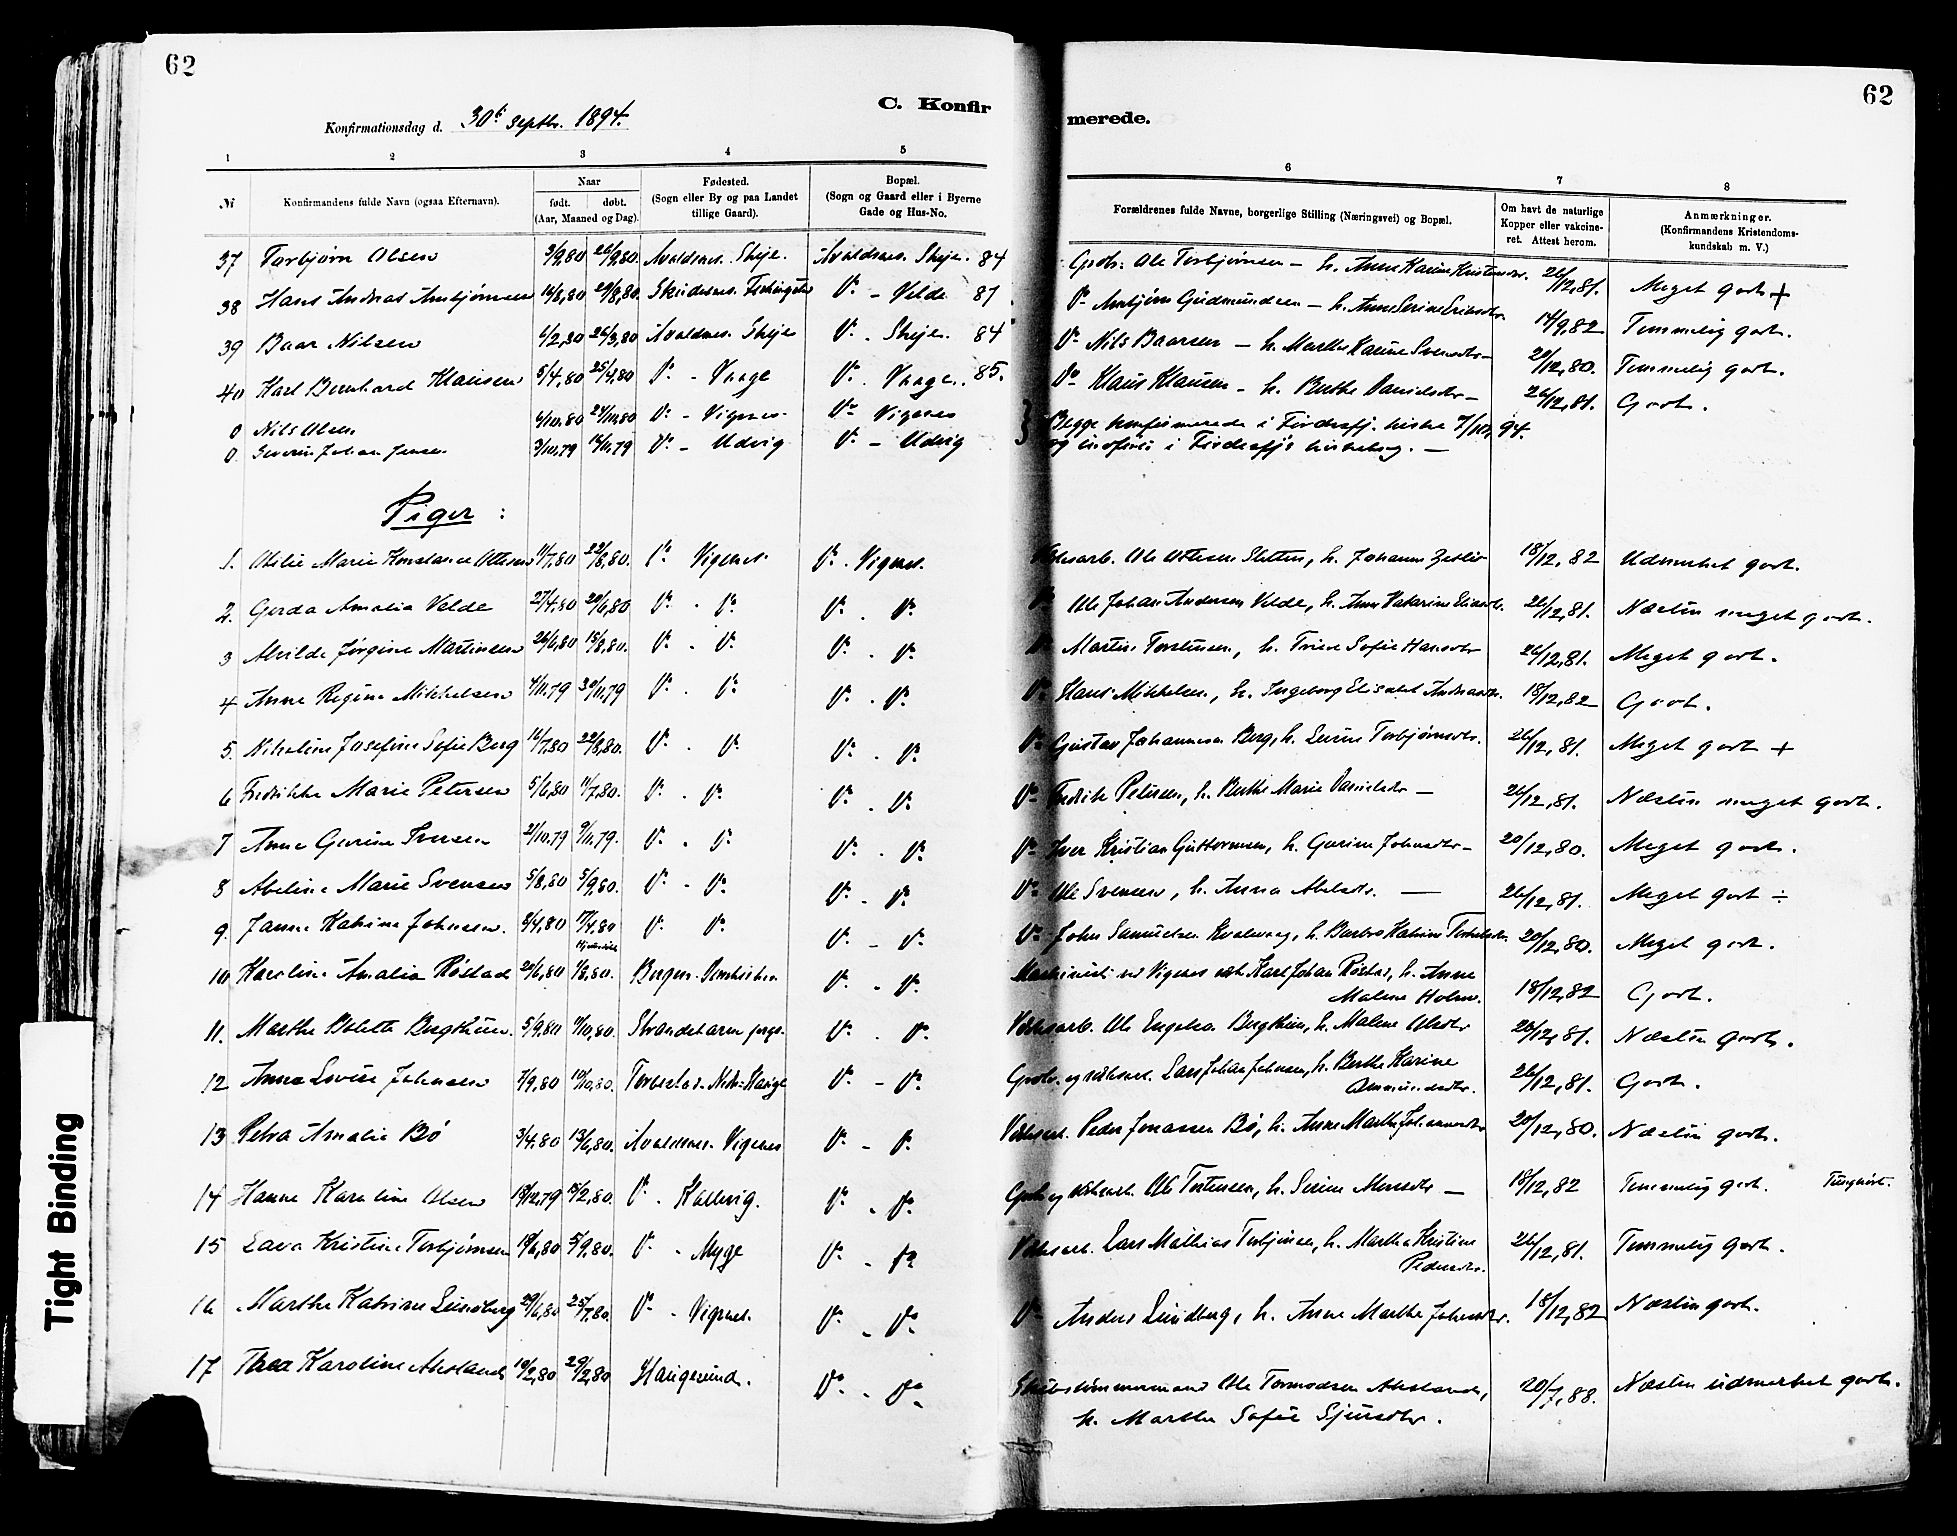 62
C. Konfirmerede.
62
Konfirmationsdag d. 30t septbr. 1894.
1 2 3 4 5 6 7 8
№ Konfirmandens fulde Navn (ogsaa Efternavn). Naar født. døbt. (Aar, Maaned og Dag). Fødested. (Sogn eller By og paa Landet tillige Gaard). Bopæl. (Sogn og Gaard eller i Byerne Gade og Hus-No. Forældrenes fulde Navne, borgerlige Stilling (Næringsvei) og Bopæl. Om havt de naturlige Kopper eller vakcineret. Attest herom. Anmærkninger. (Konfirmandens Kristendomskundskab m. V.)
37 Torbjørn Olsen 3/9,80 26/9,80. Avaldsnes. Skeje. Avaldsnes. Skeje. 84 Ole Torbjørnsen – h. Anne Karine 26/12,81. Meget godt +
38 Hans Andreas Ambjørnsen 29/8,80. Skudesnes. Do – Velde 81 Do Ambjørn Gudmundsen – h. Anne Serine 14/9,82 Temmelig godt.
39 Baar Nilsen 6/2,80 26/3,80 Avaldsnes. Skeje Do . Skeje. 84 Do Nils Baarsen – h. Marthe Karine Svensdtr – 20/12,80. Temmelig godt.
40 Karl Bernhard Klausen 5/4,80 25/4,80 Do – Vaage Do . Vaage. 85. Do Klaus Klausen – h. Berthe Danielsdtr – 26/12,81. Godt.
0 Nils Olsen 6/10,80 24/10,80 Do – Vigsnes. Do Vigsnes } Begge konfirmerede i kirke 7/10,94.
0. Severin Johan Jensen 3/10,79 16/11,79 Do – Udvig Do – Udvig og indførte i kirkebog. –
Piger :
1. Otilie Marie Konstance Ottesen 11/7,80 22/8,80. Do Vigsnes. Do . Vigsnes. Ole Ottesen Sletten, h. Johanne 18/12,82 Udmerket godt.
2. Gerda Amalia Velde 27/4,80 20/6,80 Do . Do Do . Do Ole Johan Andersen Velde, h. Anne Katarine 26/12,81. Næsten meget godt.
3 Alvilde Jørgine Martinsen 26/6,80 15/8,80. Do . Do Do . Do Martin Torstensen, h. Trine Sofie Hansdtr 26/12,81. Meget godt.
4 Anne Regine Mikkelsen 4/11,79 30/11,79 Do . Do Do . Do Do Hans Mikkelsen, h. Ingeborg Elisabet 18/12,82 Godt.
5. Nikoline Josefine Sofie Berg 16/7,80 22/8,80. Do . Do Do . Do Do Gustav Johannesen Berg, h. Serine Torbjørnsdtr. 26/12,81. Meget godt +
6 Fredrikke Marie Petersen 5/6,80 11/7,80. Do . Do Do . Do Do Fredrik Petersen, h. Berthe Marie Danielsdtr – 26/12,81. Næsten meget godt.
7 Anne Gurine Iversen 21/10,79 9/11,79. Do . Do Do . Do Do Iver Kristian Guttormsen, h. Gurine Johnsdtr – 20/12,80. Meget godt.
8 Abeline Marie Svensen 5/8,80 5/9,80. Do – Do Do – Do Do Ole Svensen, h. Anna Abelsdtr. – 26/12,81. Meget godt ÷
9. Janne Katrine Johnsen. 2/4,80 17/4,80 Do Do Do – Do Do John Samuelsen Kvalevaag, h. Barbro Katrine 20/12,80. Meget godt.
10 Karoline Amalia Røstad 20/6,80 1/8,80. Bergen. Do . Do Maskinist ved Vigsnes Karl Johan Røstad, h. Anne Malene Holm. 18/12,82 Godt.
11. Marthe Bolette Bergthun. 5/9,80 17/10,80. Strandebarm Do . Do Ole Engelsen Bergthun, h. Malene Olsdtr 26/12,81. Næsten godt.
12 Anna Lovise Johnsen 7/9,80 10/10,80. Torvestad. Do – Do Lars Johan Johnsen, h. Berthe Karine 26/12,81. Godt.
13 Petra Amalie Bø 3/4,80 13/6,80. Avaldsnes. Vigsnes Do – Do Peder Jonassen Bø, h. Anne Marthe 20/12,80. Næsten godt.
14 Hanne Karoline Olsen 19/12,79 15/2,80. Do . Kallevig. Do . Do Ole Tostensen, h. Serine – 18/12,82 Temmelig godt. Tunghørt.
15 Lava Kristine Torbjørnsen 19/6,80 5/9,80. Do . Myge Do – Do Lars Mathias Torbjørnsen, h. Martha Kristine Pedersdtr. 26/12,81. Temmelig godt.
16 Marthe Katrine Lundberg 29/6,80 25/7,80. Do . Vigsnes. Do – Do Do Anders Lundberg, h. Anne Marthe Johnsdtr. 18/12,82 Næsten godt.
17 Thea Karoline Akslands 10/2,80 29/2,80 Haugesund. Do . Do Skibstømmermand Ole Tormodsen Akslands, h. Marthe Sofie Sjursdtr. 20/7,88. Næsten udmerket godt.
Tight Binding